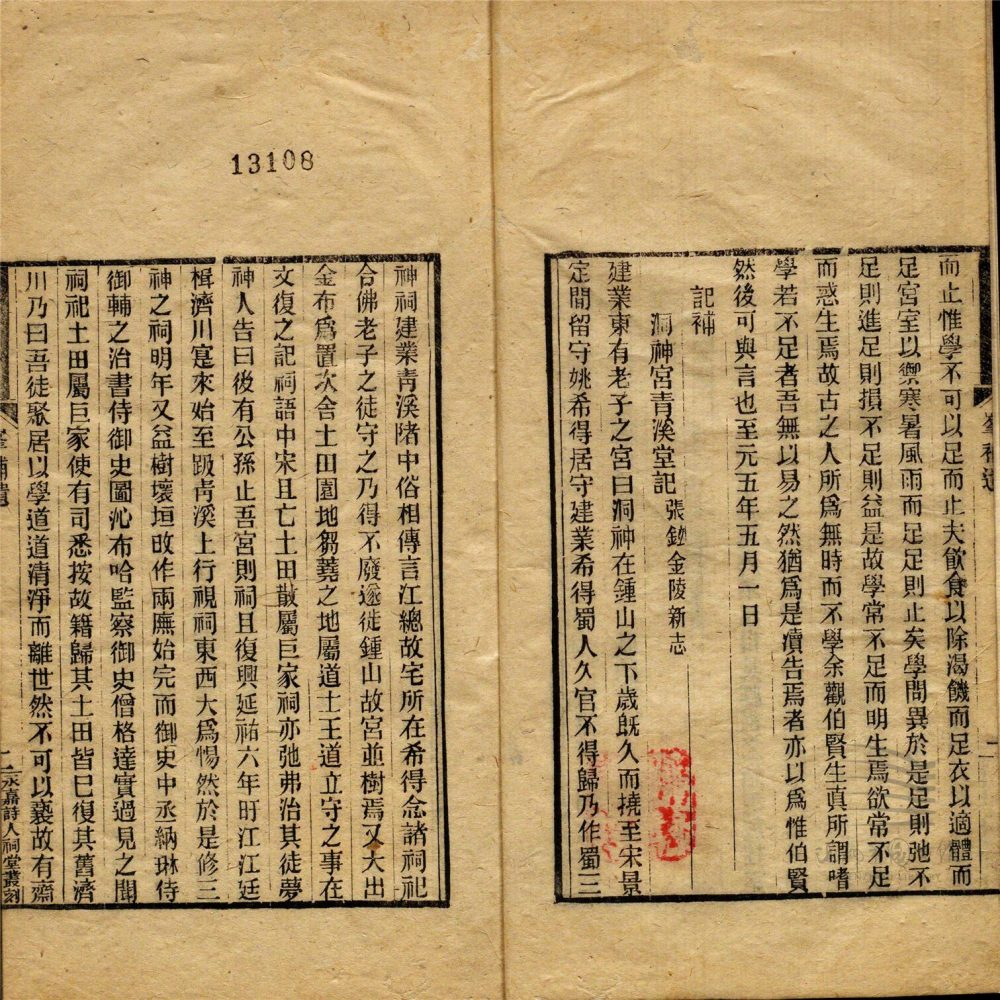 而止惟學不可以足而止夫飲食以除渴饑而足衣以適體而
足宮室以禦寒暑風雨而足足則止矣學問異於是足則弛不
足則進足則損不足則益是故學常不足而明生焉欲常不足
而惑生焉故古之人所爲無時而不學余觀伯賢生真所謂嗜
學若不足者吾無以易之然猶爲是瀆告焉者亦以爲惟伯賢
然後可與言也至元五年五月一日
記補
洞神宮青溪堂記 張鉉金陵新志
建業東有老子之宮曰洞神在鍾山之下歲旣久而撓至宋景
定間留守姚希得居守建業希得蜀人久官不得歸乃作蜀三
二
13108
神祠建業青溪陼中俗相傳言江總故宅所在希得念諸祠祀
合佛老子之徒守之乃得不廢遂徙鍾山故宮並樹焉又大出
金布爲置次舍土田園地芻蕘之地屬道士王道立守之事在
文復之記祠語中宋且亡土田散屬巨家祠亦弛弗治其徒夢
神人告曰後有公孫止吾宮則祠且復興延祐六年旴江江廷
楫濟川寔來始至跋靑溪上行視祠東西大爲惕然於是修三
神之祠明年又益樹壞垣攺作兩廡始完而御史中丞納琳侍
御輔之治書侍御史圖沁布哈監察御史僧格達實過見之聞
祠祀土田屬巨家使有司悉按故籍歸其土田皆巳復其舊濟
川乃曰吾徒聚居以學道道清淨而離世然不可以褻故有齋
補遺
二
永嘉詩人祠堂叢刻